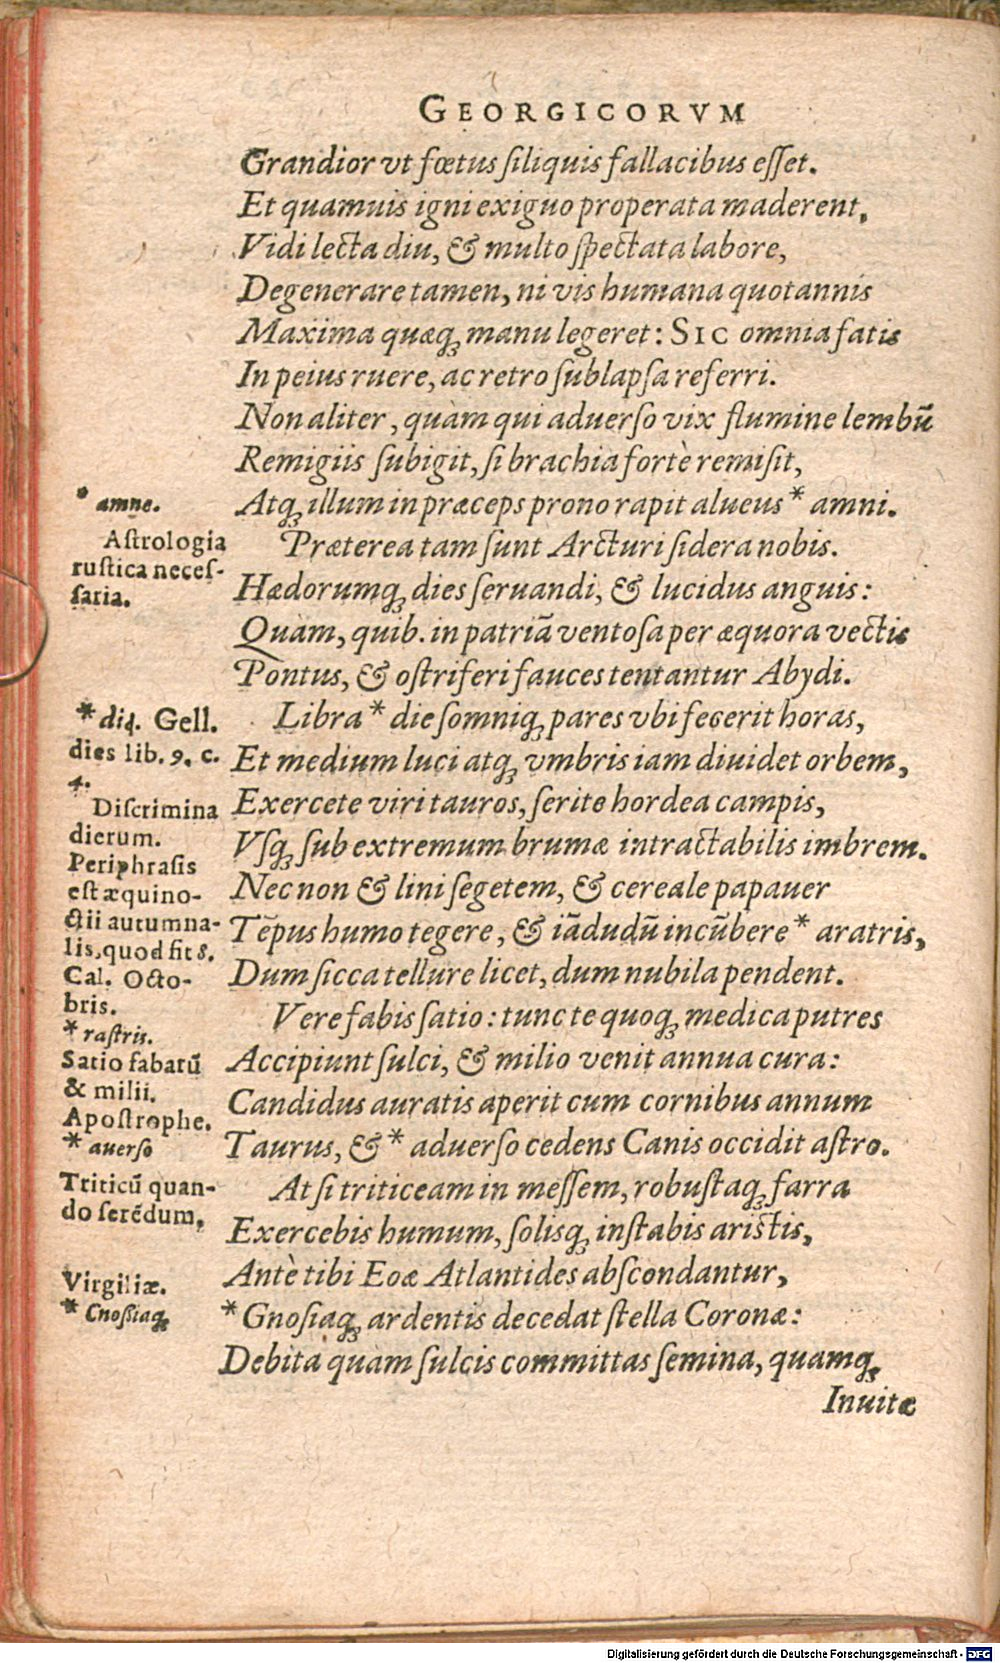 GEORGICORVM
Grandior vt fœtus ſiliquis fallacibus eſſet.
Et quamuis igni exiguo properata maderent,
Vidi lecta diu, & multo ſpectata labore,
Degenerare tamen, ni vis humana quotannis
Maxima quæq; manu legeret: SIC omnia fatis
In peius ruere, ac retro ſublapſa referri.
Non aliter, quàm qui aduerſo vix flumine lembū
Remigiis ſubigit, ſi brachia fortè remiſit,
Atq; illum in præceps prono rapit alueus * amni.
Præterea tam ſunt Arcturi ſidera nobis.
Hædorumq; dies ſeruandi, & lucidus anguis:
Quàm, quib. in patriā ventoſa per æquora vectis
Pontus, & oſtriferi fauces tentantur Abydi.
Libra * die ſomniq; pares vbi fecerit horas,
Et medium luci atq; vmbris iam diuidet orbem,
Exercete viri tauros, ſerite hordea campis,
Vſq; ſub extremum brumæ intractabilis imbrem.
Nec non & lini ſegetem, & cereale papauer
Tēpus humo tegere, & iādudū incūbere * aratris,
Dum ſicca tellure licet, dum nubila pendent.
Vere fabis ſatio: tunc te quoq; medica putres
Accipiunt ſulci, & milio venit annua cura:
Candidus auratis aperit cum cornibus annum
Taurus, & * aduerſo cedens Canis occidit aſtro.
At ſi triticeam in meſſem, robuſtaq; farra
Exercebis humum, ſolisq; inſtabis ariſtis,
Antè tibi Eoæ Atlantides abſcondantur,
* Gnoſiaq; ardentis decedat ſtella Coronæ:
Debita quàm ſulcis committas ſemina, quamq;
Inuitæ
* amne.
Aſtrologia
ruſtica neceſ-
ſaria.
* diq. Gell.
dies lib. 9. c.
4.
Diſcrimina
dierum.
Periphraſis
eſt æquino-
ctii autumna-
lis, quod fit 8.
Cal. Octo-
bris.
* raſtris.
Satio fabarū
& milii.
Apoſtrophe.
* auerſo
Triticū quan-
do ſerēdum,
Virgiliæ.
* Cnoſſiaq;
Digitalisierung gefördert durch die Deutsche Forschungsgemeinschaft - DFG